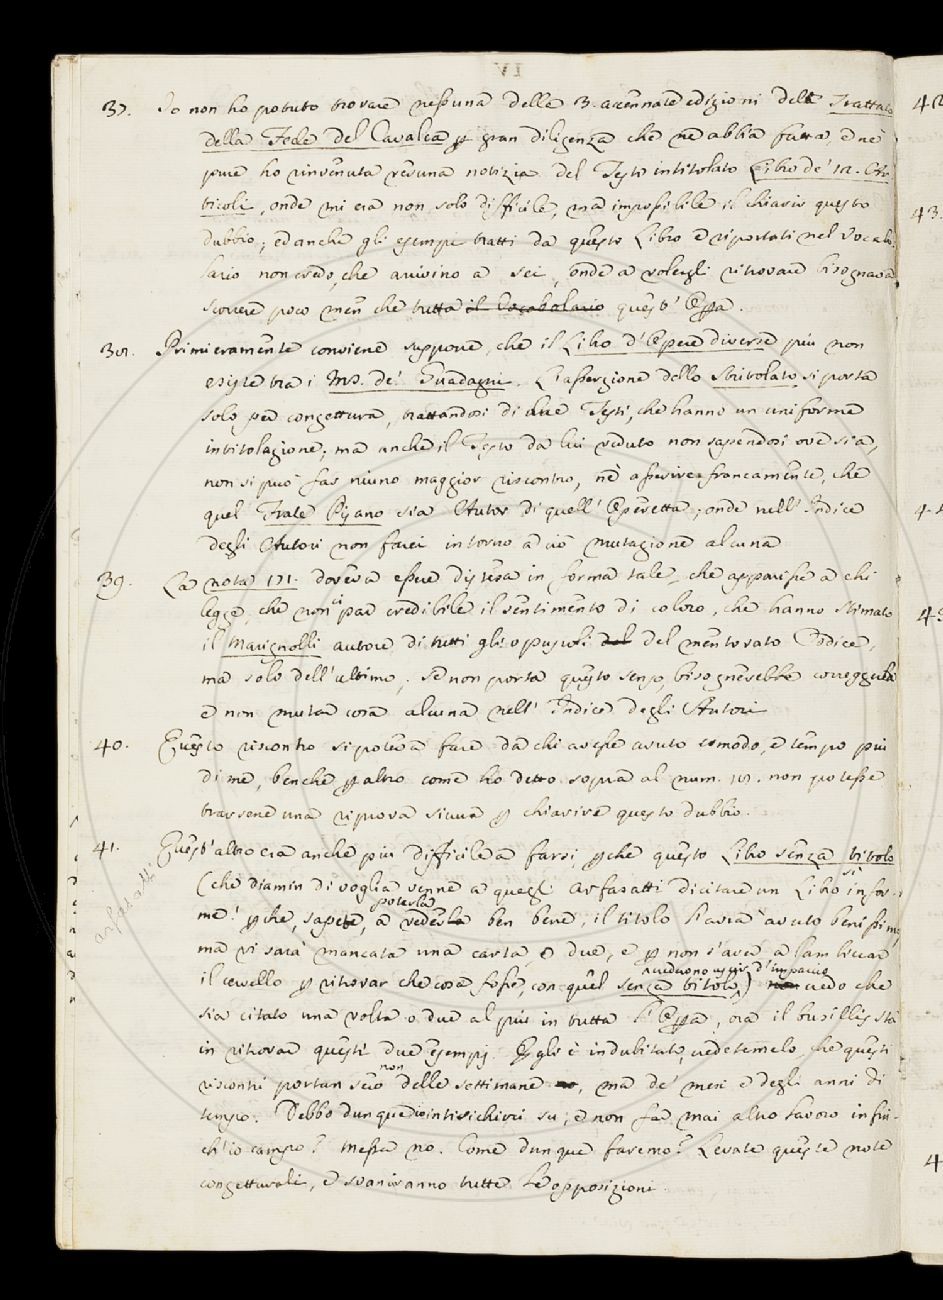 37. Io non ho potuto trovare nessuna delle 3. accennate edizioni del Trattato
della Fede del Cavalca p gran diligenza che ne abbia fatta, e nè
pure ho rinvenuta veruna notizia del Testo intitolato Libro de' 12. Ar-
ticoli, onde mi era non solo difficile, ma impossibile il chiarir questo
dubbio; ed anche gli esempi tratti da questo Libro e riportati nel Vocabo-
lario non credo, che arrivino a sei, onde a volergli ritrovare bisognava
scorrere poco men che tutta il Vocabolario quest' Opa.
38. Primieramente conviene supporre, che il Libro d'Opere diverse più non
esista tra i Ms. de' Guadagni. L'asserzione dello Stritolato si porta
solo per congettura, trattandosi di due Testi, che hanno un uniforme
intitolazione; ma anche il Testo da lui veduto non sapendosi ove sia,
non si può far niuno maggior riscontro, nè asserire francamente, che
quel Frate Pisano sia Autor di quell' Operetta; onde nell' Indice
degli Autori non farei intorno a ciò mutazione alcuna
39. La nota 171. doveva essere distesa in forma tale, che apparisse a chi
legge, che non ci par credibile il sentimento di coloro, che hanno stimato
il Marignolli autore di tutti gli opuscoli del del mentovato Codice,
ma solo dell'ultimo; se non porta questo senso, bisognerebbe correggerla
e non mutar cosa alcuna nell' Indice degli Autori
40. Questo riscontro si poteva fare da chi avesse avuto comodo, e tempo più
di me, benchè p altro come ho detto sopra al num. 18. non potesse
trarsene una riprova sicura p chiarire questo dubbio.
41. Quest'altro era anche più difficile a farsi pche questo Libro senza titolo
(che diamin di voglia venne a quegli arfasatti di citare un Libro sì infor-
me! pche, sapete, a poterla veder ben bene, il titolo l'avrà avuto benissimo,
ma vi sarà mancata una carta, o due, e p non s'aver a lambiccar
il cervello p ritrovar che cosa fosse, con quel senza titolo, crederono uscir d'impaccio) non credo che
sia citato una volta o due al più in tutta l'Opa, ora il busillis sta
in ritrovar questi due esempj. Egli è indubitato, credetemelo, che questi
riscontri portan seco non delle settimane no, ma de' mesi e degli anni di
tempo. Debbo dunque io intisichirci su, e non far mai altro lavoro infin-
ch'io campo? Messer no. Come dunque faremo? Levate queste note
congetturali, e svaniranno tutte le opposizioni
arfasatti